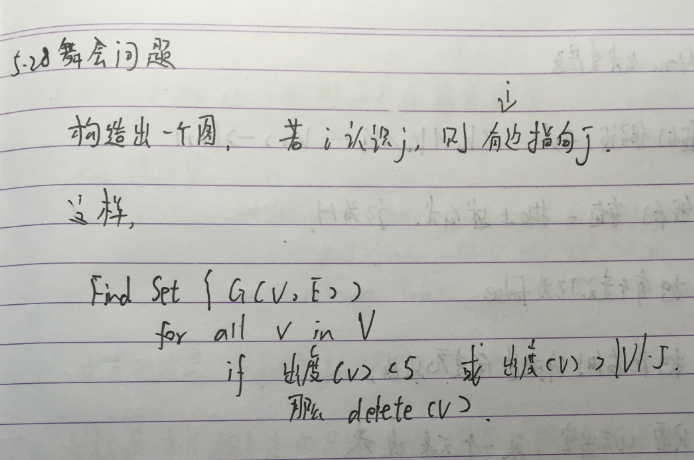 5.28 舞会问题
i
构造出一个图, 若 i 认识 j, 则 有边指向 j.
这样,
Find Set { G(V, E) )
for all v in V
if 出度(v) <5 或 出度(v) > |V|-5.
那么 delete (v).